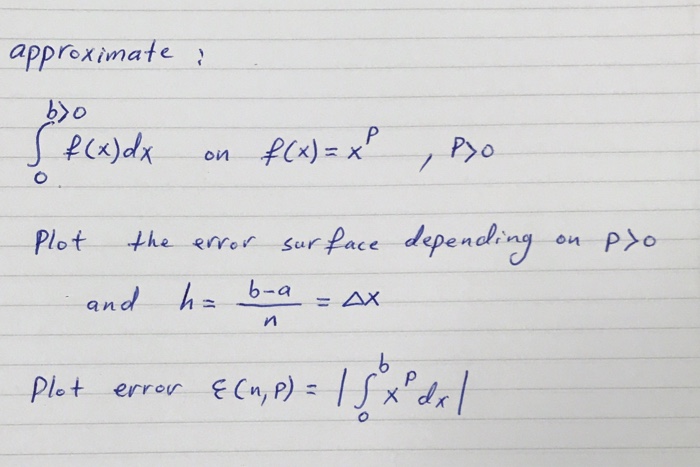 approximate :
∫₀^{b>0} f(x)dx on f(x) = x^p , p>0
Plot the error surface depending on p>0
and h = (b-a)/n = Δx
Plot error ε(n,p) = |∫₀^b x^p dx|